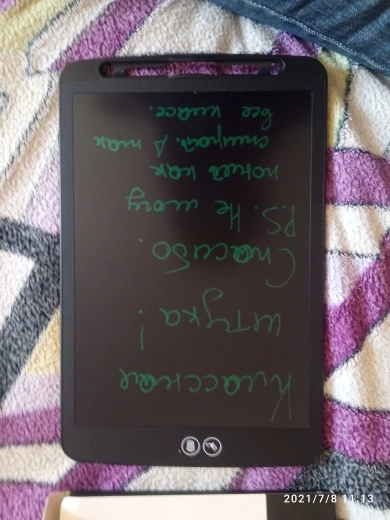 Классная
штука!
Спасибо.
P.S. Не могу
понять как
стирать. А так
все класс.
2021/7/8 11:13